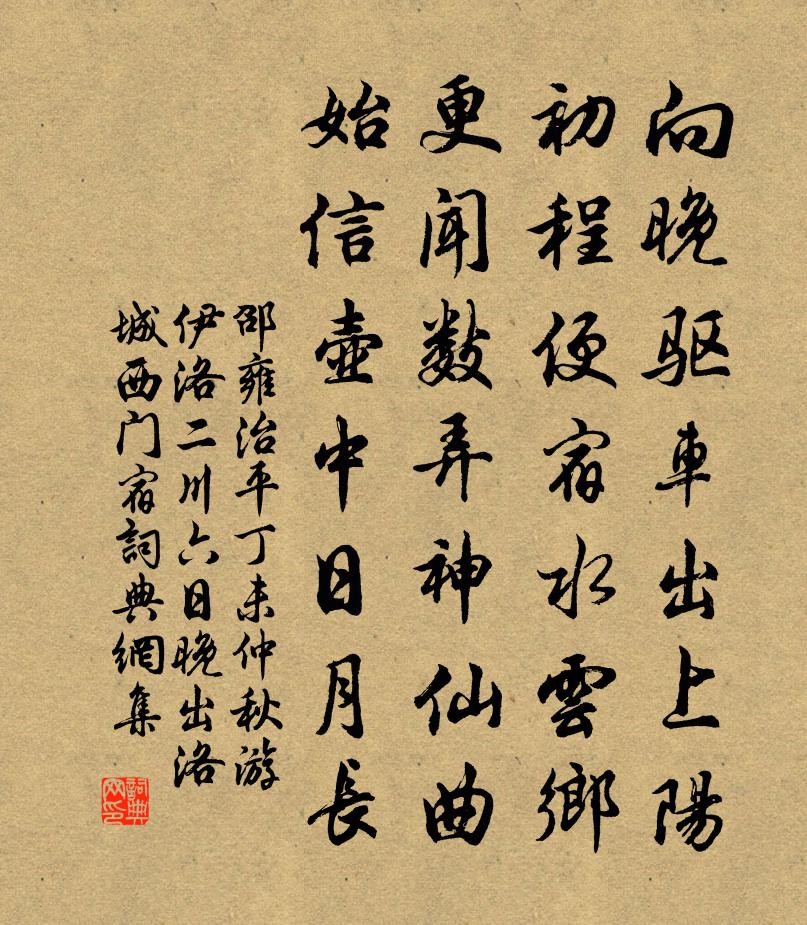 向晚驱車出上陽
初程便宿水雲鄉
更闻数弄神仙曲
始信壺中日月長
邵雍治平丁未仲秋游
伊洛二川六日晚出洛
城西门宿詞典網集
詞典
网印